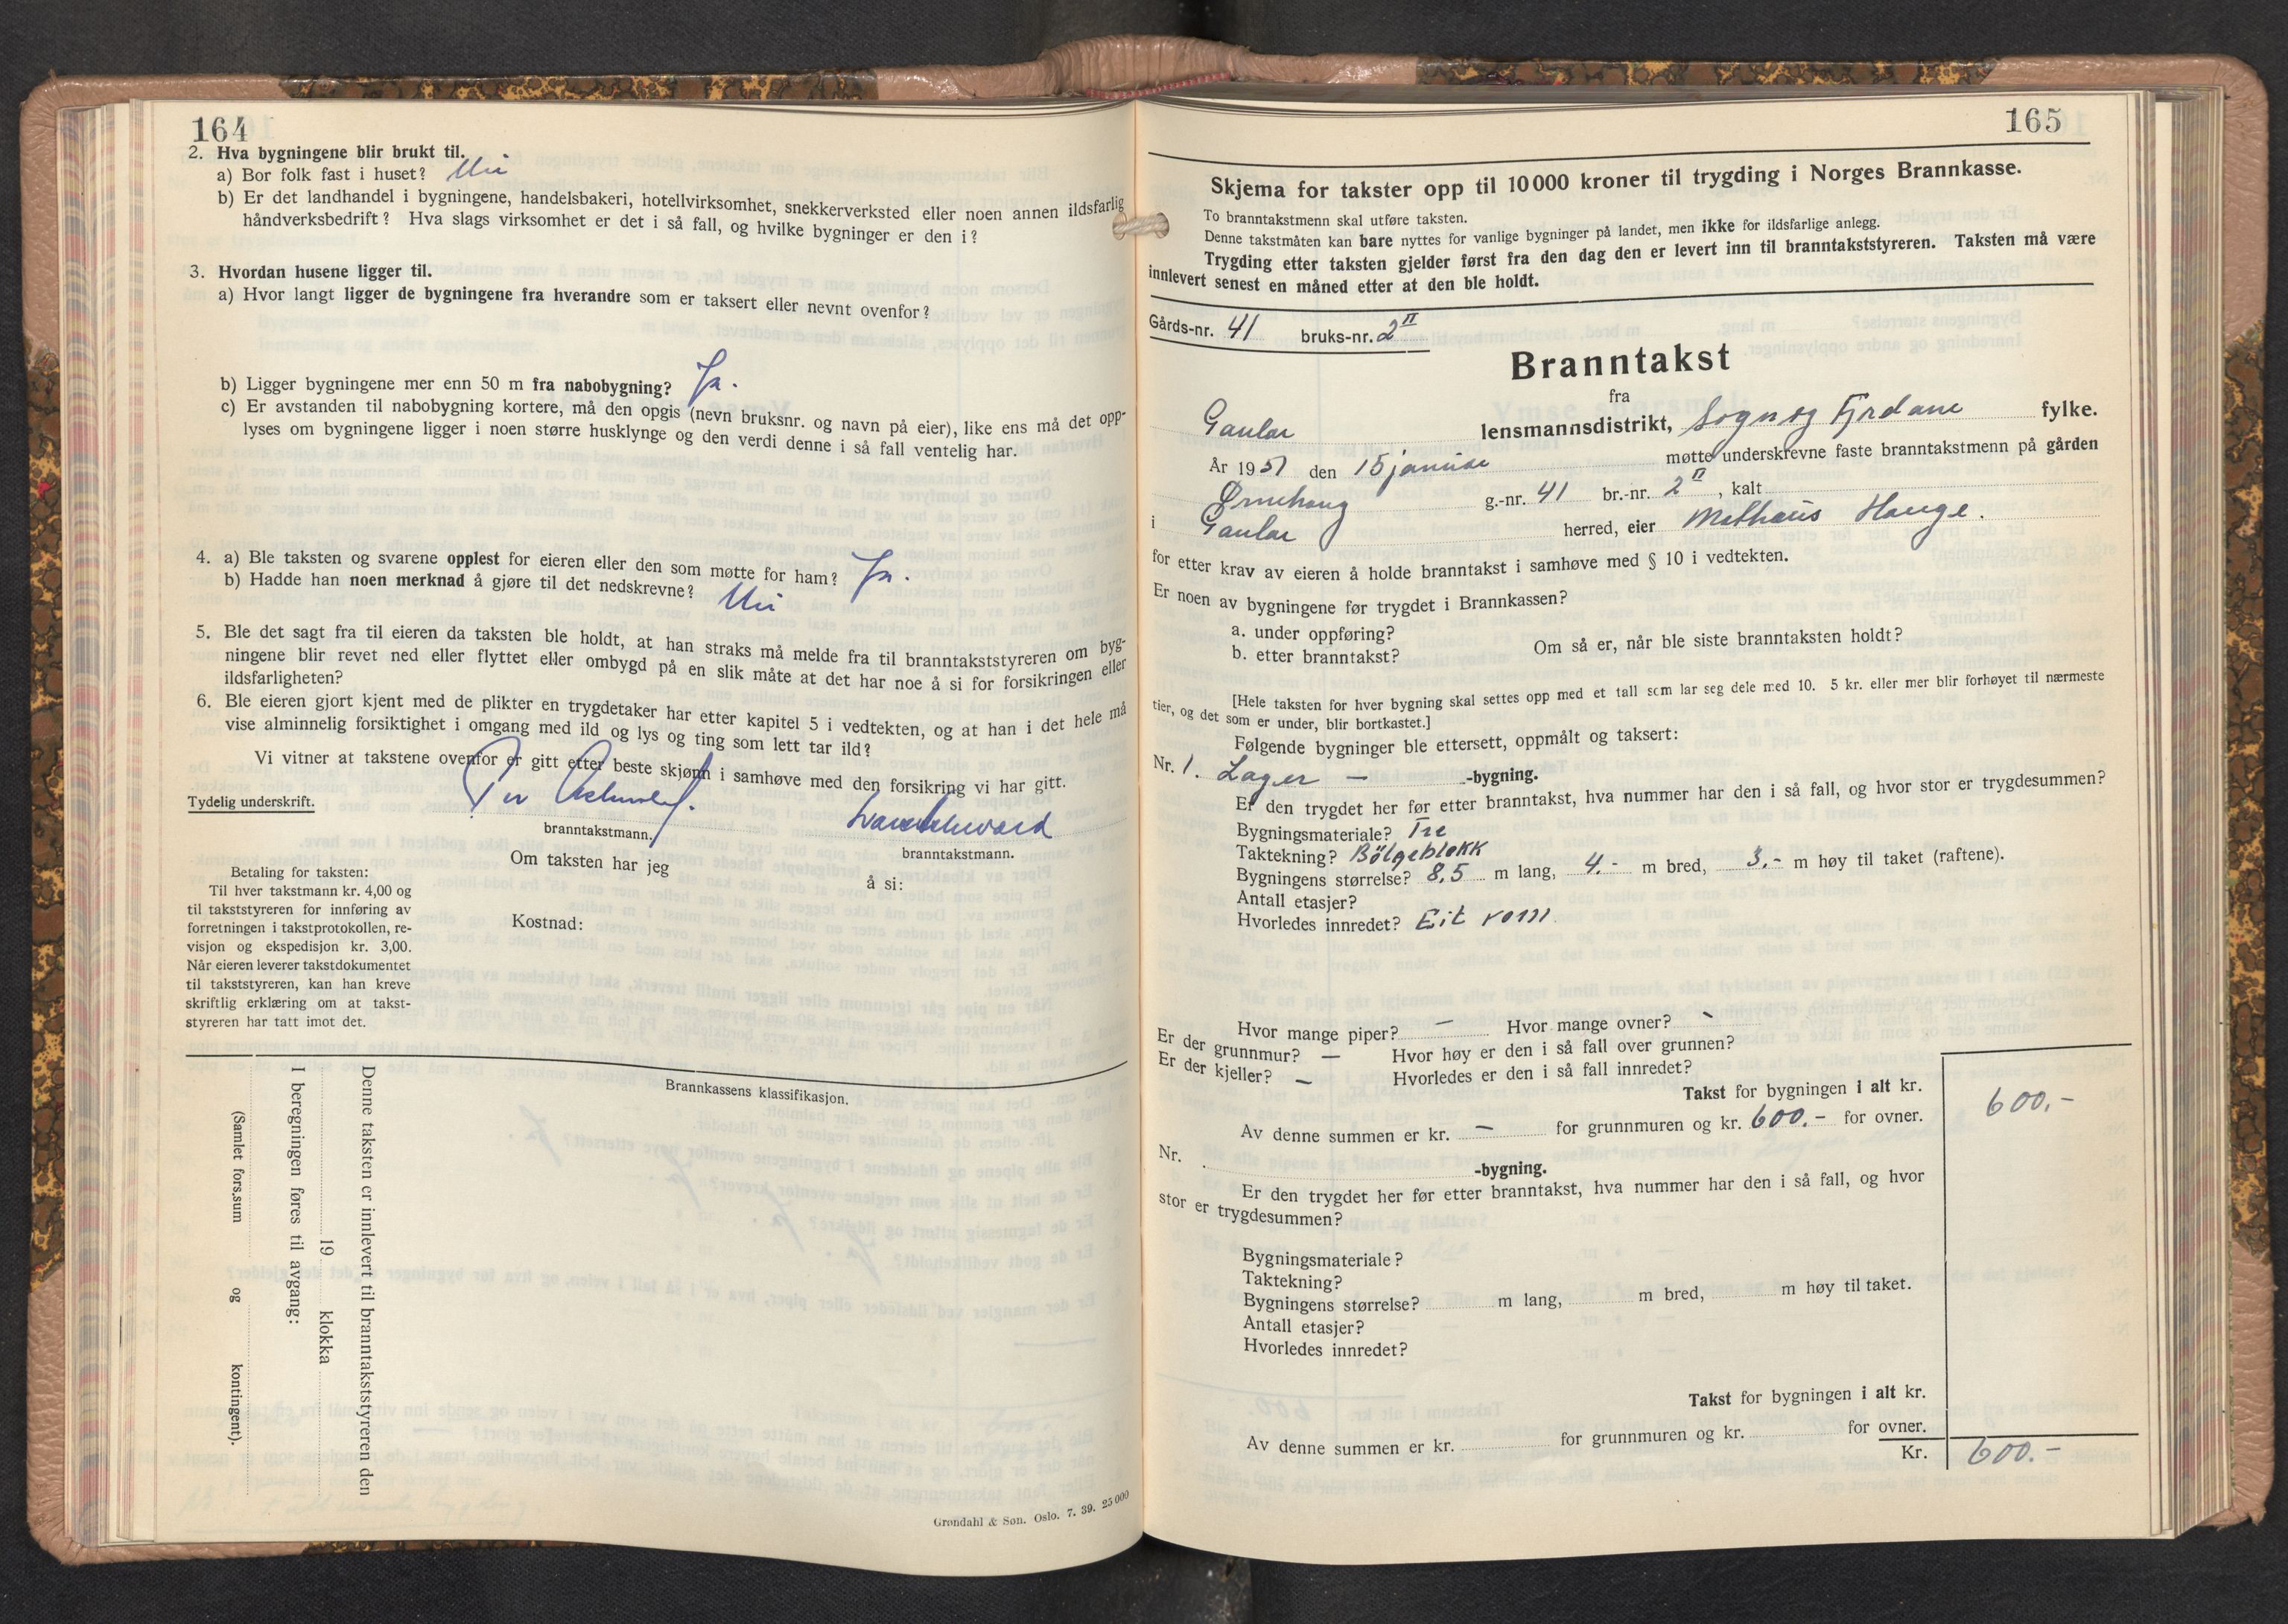 164
2. Hva bygningene blir brukt til.
a) Bor folk fast i huset? Nei
b) Er det landhandel i bygningene, handelsbakeri, hotellvirksomhet, snekkerverksted eller noen annen ildsfarlig
håndverksbedrift? Hva slags virksomhet er det i så fall, og hvilke bygninger er den i?
3. Hvordan husene ligger til.
a) Hvor langt ligger de bygningene fra hverandre som er taksert eller nevnt ovenfor?
b) Ligger bygningene mer enn 50 m fra nabobygning? Ja.
c) Er avstanden til nabobygning kortere, må den opgis (nevn bruksnr. og navn på eier), like ens må det opp-
lyses om bygningene ligger i noen større husklynge og den verdi denne i så fall ventelig har.
4. a) Ble taksten og svarene opplest for eieren eller den som møtte for ham? Ja.
b) Hadde han noen merknad å gjøre til det nedskrevne? Nei
5. Ble det sagt fra til eieren da taksten ble holdt, at han straks må melde fra til branntakststyreren om byg-
ningene blir revet ned eller flyttet eller ombygd på en slik måte at det har noe å si for forsikringen eller
ildsfarligheten?
6. Ble eieren gjort kjent med de plikter en trygdetaker har etter kapitel 5 i vedtekten, og at han i det hele må
vise alminnelig forsiktighet i omgang med ild og lys og ting som lett tar ild?
Vi vitner at takstene ovenfor er gitt etter beste skjønn i samhøve med den forsikring vi har gitt.
Tydelig underskrift.
branntakstmann.
branntakstmann.
Om taksten har jeg
å si:
Kostnad:
Betaling for taksten:
Til hver takstmann kr. 4,00 og
til takststyreren for innføring av
forretningen i takstprotokollen, re-
visjon og ekspedisjon kr. 3,00.
Når eieren leverer takstdokumentet
til takststyreren, kan han kreve
skriftlig erklæring om at takst-
styreren har tatt imot det.
Brannkassens klassifikasjon.
Denne taksten er innlevert til branntakststyreren den
19 klokka
I beregningen føres til avgang:
(Samlet fors.sum og kontingent).
Grøndahl & Søn. Oslo. 7. 39. 25 000
165
Skjema for takster opp til 10 000 kroner til trygding i Norges Brannkasse.
To branntakstmenn skal utføre taksten.
Denne takstmåten kan bare nyttes for vanlige bygninger på landet, men ikke for ildsfarlige anlegg.
Trygding etter taksten gjelder først fra den dag den er levert inn til branntakststyreren. Taksten må være
innlevert senest en måned etter at den ble holdt.
Gårds-nr. 41 bruks-nr. 2 II
Branntakst
fra
Gaular lensmannsdistrikt, Sogn og Fjordane fylke.
År 1951 den 15 januar møtte underskrevne faste branntakstmenn på gården
Ørnehaug g.-nr. 41 br.-nr. 2 II, kalt
i Gaular herred, eier Mathæus Hauge.
for etter krav av eieren å holde branntakst i samhøve med § 10 i vedtekten.
Er noen av bygningene før trygdet i Brannkassen?
a. under oppføring?
b. etter branntakst? Om så er, når ble siste branntaksten holdt?
[Hele taksten for hver bygning skal settes opp med et tall som lar seg dele med 10. 5 kr. eller mer blir forhøyet til nærmeste
tier, og det som er under, blir bortkastet.]
Følgende bygninger ble ettersett, oppmålt og taksert:
Nr. 1. Lager – -bygning.
Er den trygdet her før etter branntakst, hva nummer har den i så fall, og hvor stor er trygdesummen?
Bygningsmateriale? Tre
Taktekning? Bölgeblekk
Bygningens størrelse? 8,5 m lang, 4.- m bred, 3.- m høy til taket (raftene).
Antall etasjer?
Hvorledes innredet? Eit rom
Hvor mange piper? – Hvor mange ovner? -
Er der grunnmur? – Hvor høy er den i så fall over grunnen?
Er der kjeller? – Hvorledes er den i så fall innredet?
Takst for bygningen i alt kr. 600.-
Av denne summen er kr. – for grunnmuren og kr. 600.- for ovner.
Nr. -bygning.
Er den trygdet her før etter branntakst, hva nummer har den i så fall, og hvor
stor er trygdesummen?
Bygningsmateriale?
Taktekning?
Bygningens størrelse? m lang, m bred, m høy til taket.
Antall etasjer?
Hvorledes innredet?
Takst for bygningen i alt kr.
Av denne summen er kr. for grunnmuren og kr. for ovner.
Kr. 600.-